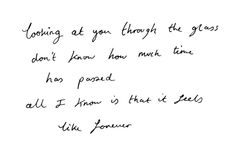 looking at you through the glass
don't know how much time
has passed
all I know is that it feels
like forever